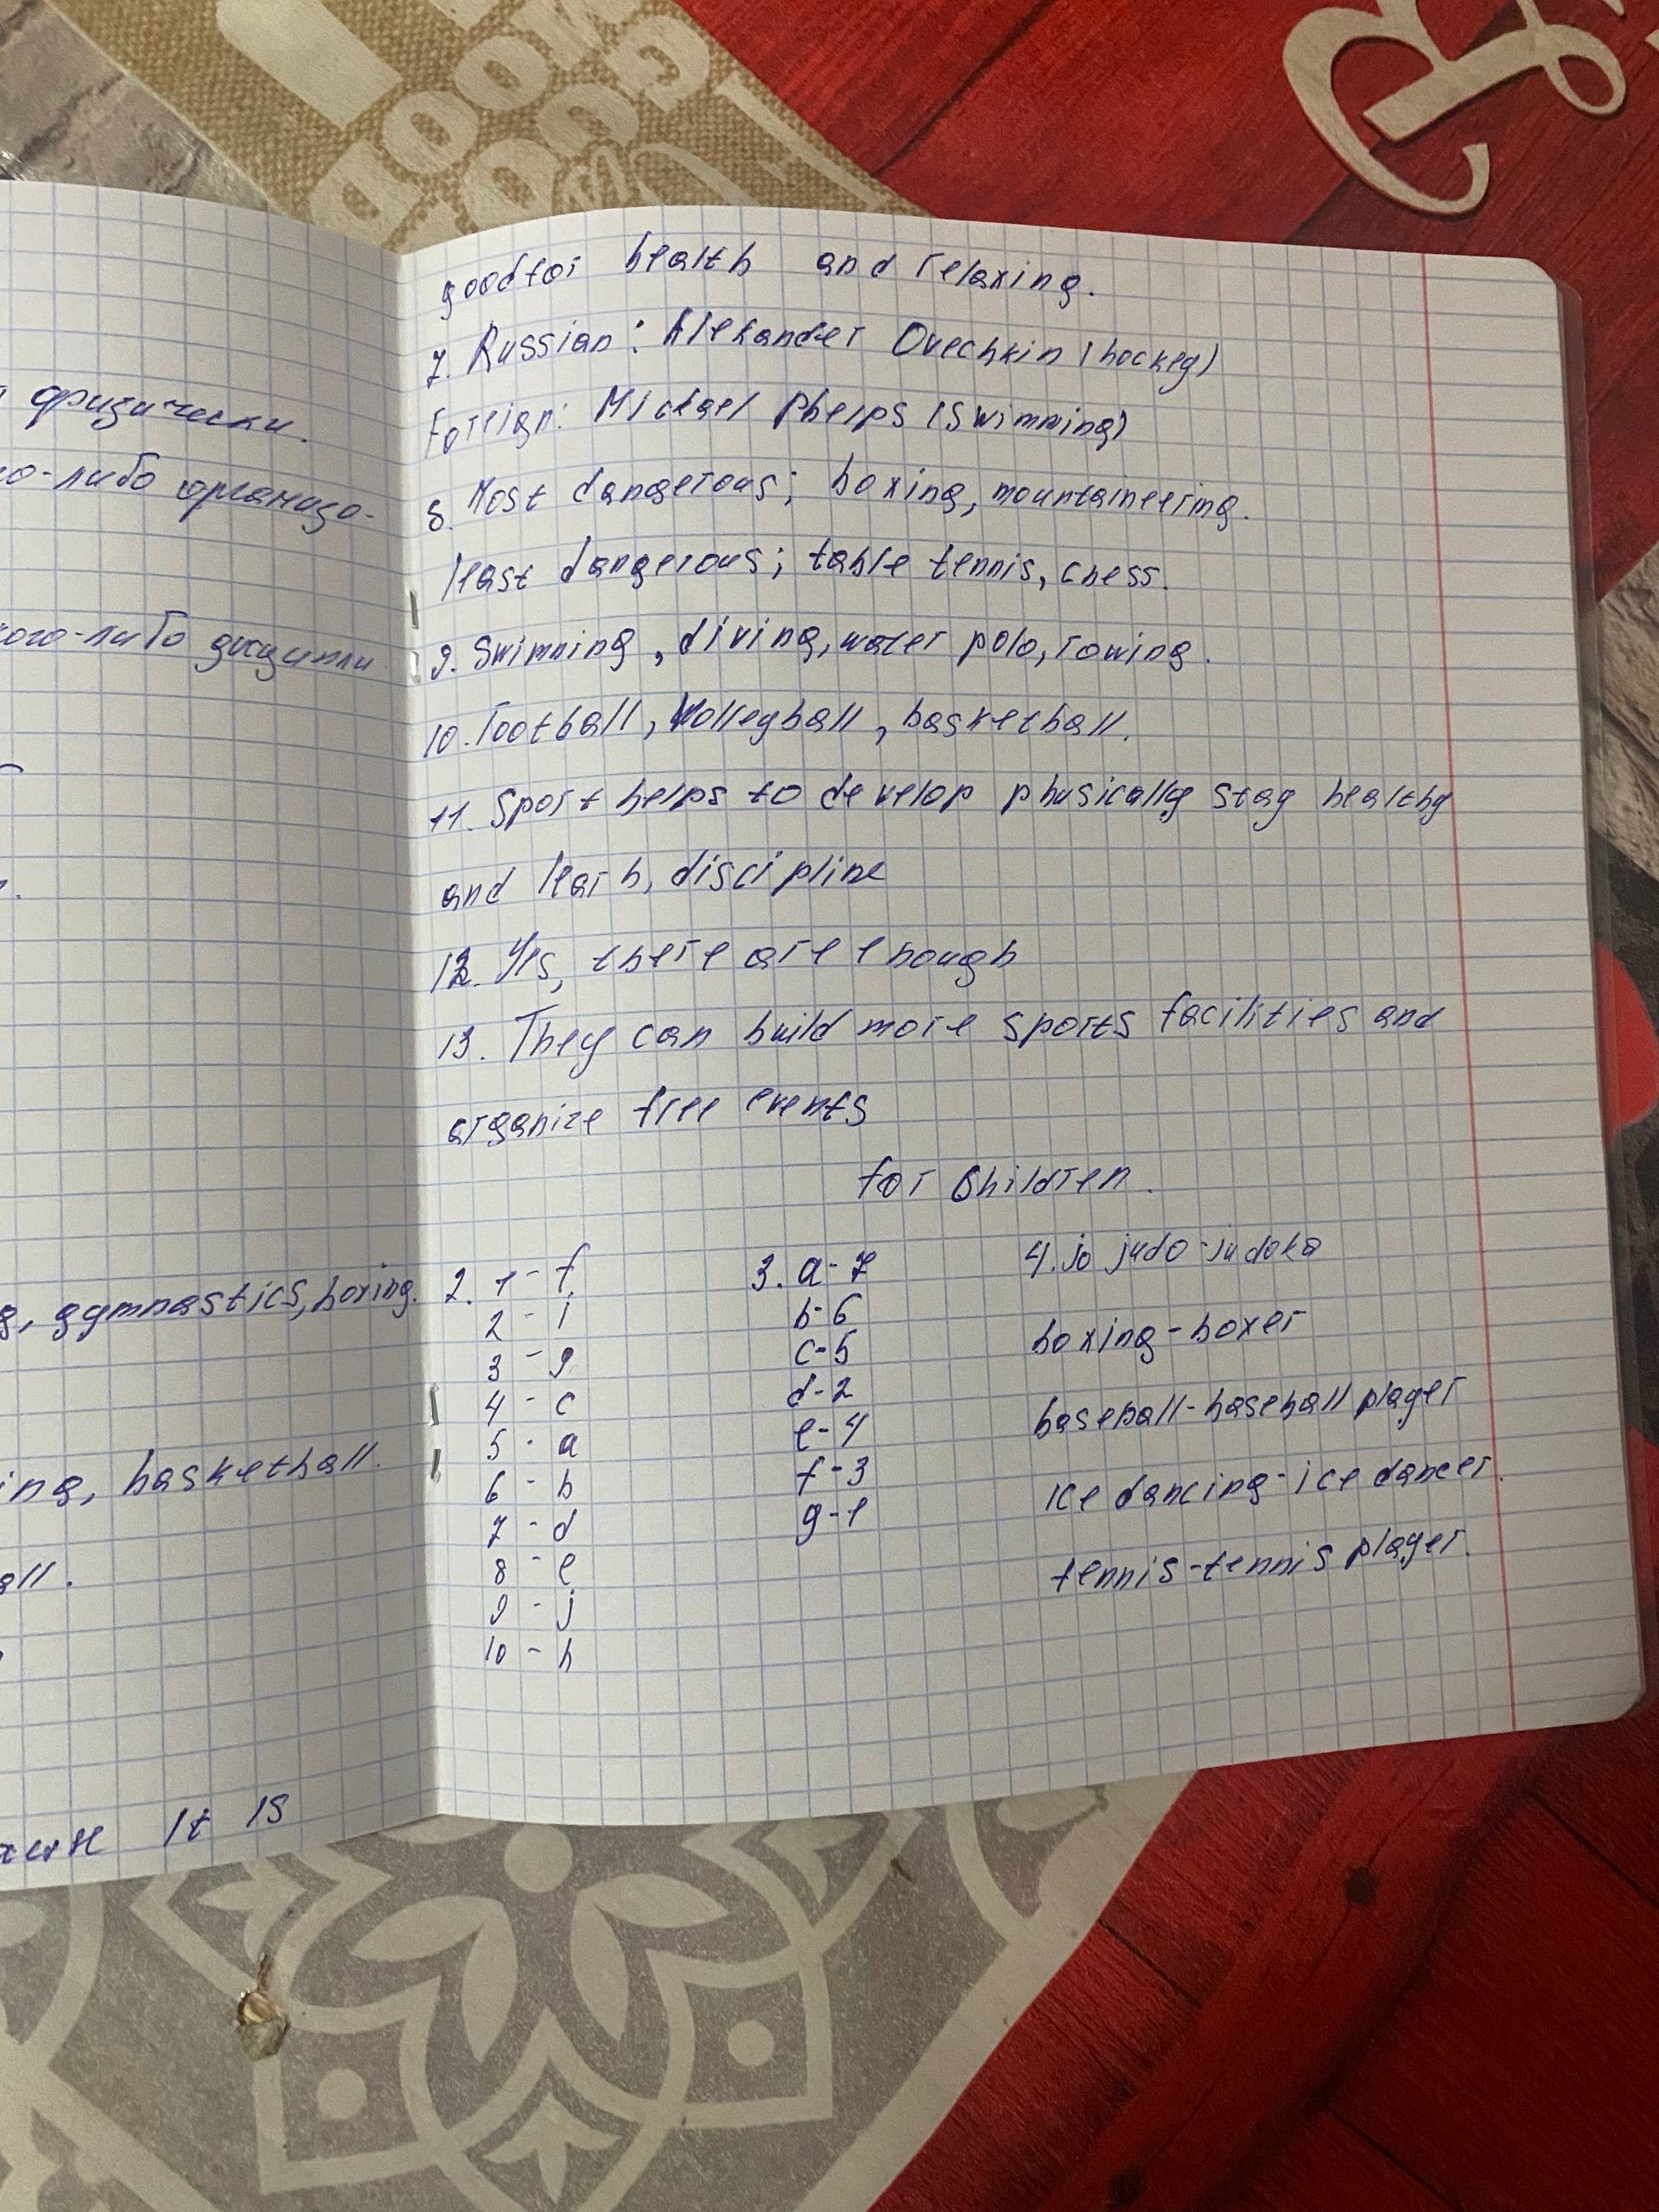 физически.
го-либо организо-
кого-либо
g, gymnastics, boxing.
ing, basketball.
all.
It is
good for health and relaxing.
7. Russian: Alexander Ovechkin (hockey)
Foreign: Michael Phelps (Swimming)
8. Most dangerous; boxing, mountaineering.
least dangerous; table tennis, chess.
9. Swimming, diving, water polo, rowing.
10. Football, Volleyball, basketball.
11. Sport helps to develop phusically stay healthy
and learn, discipline
12. Yes, there are enough
13. They can build more sports facilities and
organize free events
for Children.
2. 1 - f
2 - i
3 - g
4 - c
5 - a
6 - b
7 - d
8 - e
9 - j
10 - h
3. a - 7
b - 6
c - 5
d - 2
e - 4
f - 3
g - 1
4. jo judo - judoka
boxing - boxer
baseball - baseball player
Ice dancing - ice dancer.
tennis - tennis player.